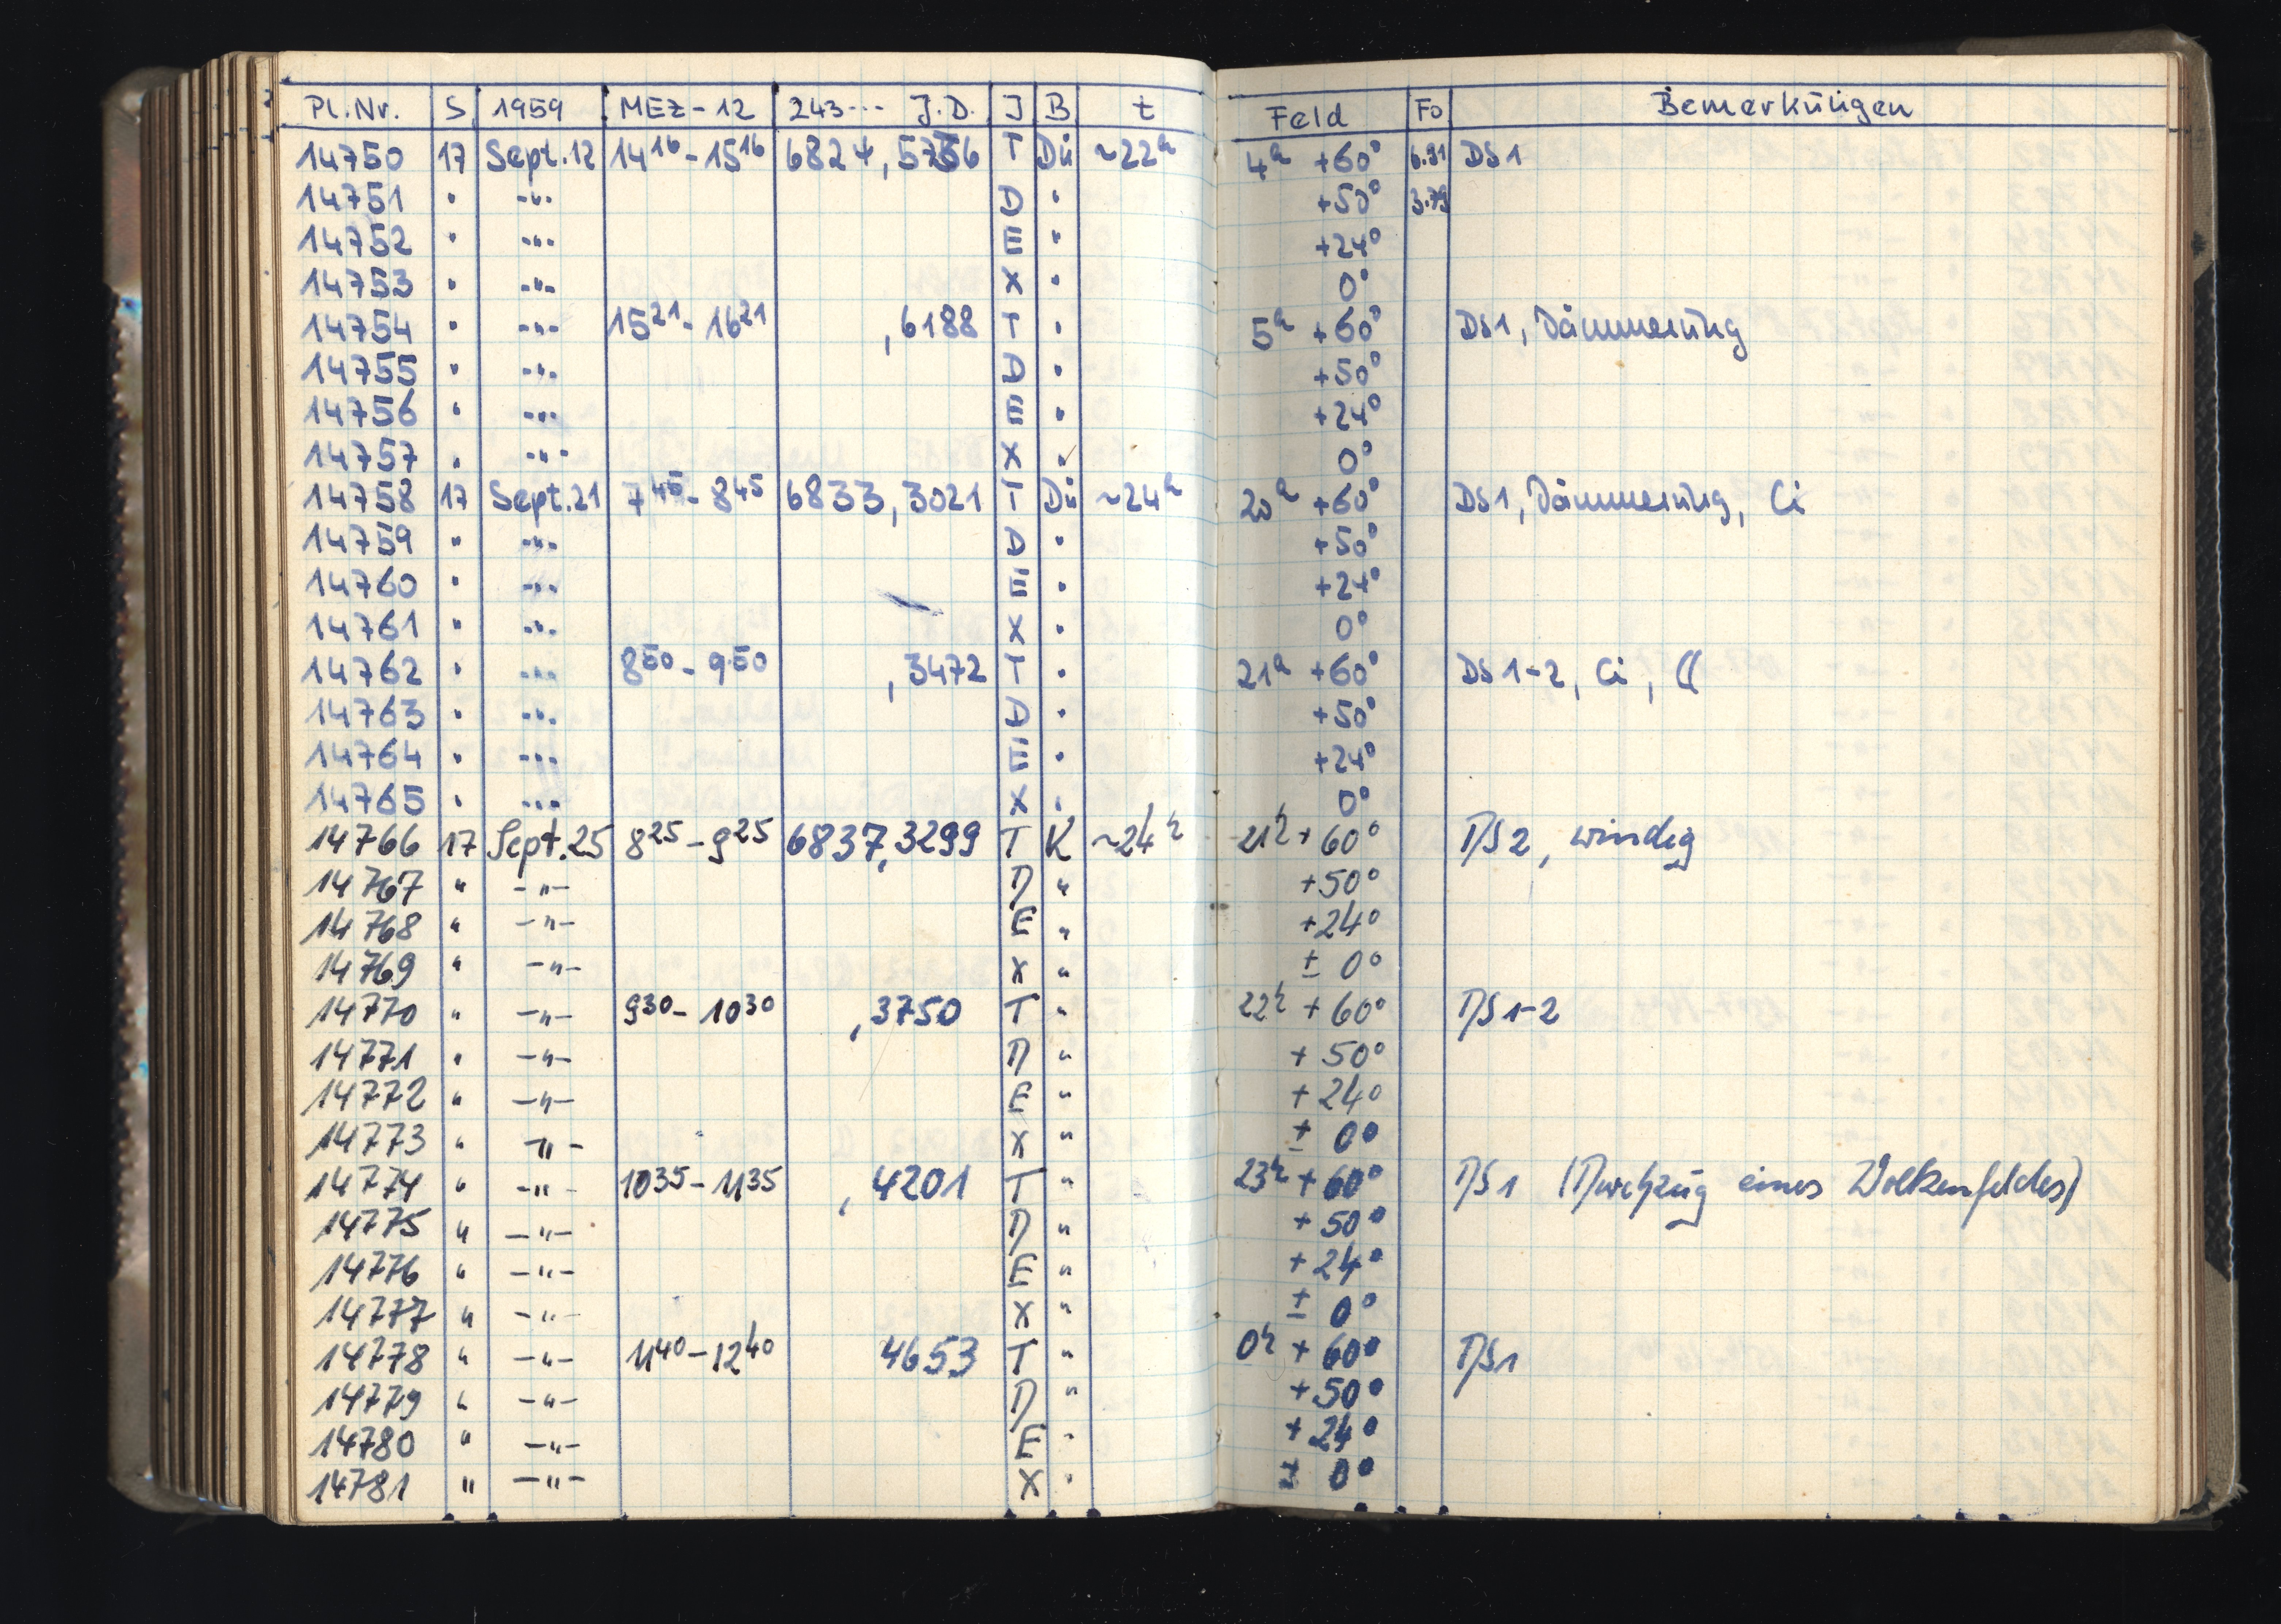 Pl.Nr. S 1959 MEZ-12 243... J.D. J B t Feld Fo Bemerkungen
14750 17 Sept.12 14¹⁶-15¹⁶ 6824,5736 T Dü ~22ʰ 4ʰ +60° 6.91 DS1
14751 " -"- D " +50° 3.79
14752 " -"- E " +24°
14753 " -"- X " 0°
14754 " -"- 15²¹-16²¹ ,6188 T " 5ʰ +60° DS1, Dämmerung
14755 " -"- D " +50°
14756 " -"- E " +24°
14757 " -"- X " 0°
14758 17 Sept.21 7⁴⁵-8⁴⁵ 6833,3021 T Dü ~24ʰ 20ʰ +60° DS1, Dämmerung, Ci
14759 " -"- D " +50°
14760 " -"- E " +24°
14761 " -"- X " 0°
14762 " -"- 8⁵⁰-9⁵⁰ ,3472 T " 21ʰ +60° DS1-2, Ci, ☾
14763 " -"- D " +50°
14764 " -"- E " +24°
14765 " -"- X " 0°
14766 17 Sept.25 8²⁵-9²⁵ 6837,3299 T K ~24ʰ 21ʰ +60° DS2, windig
14767 " -"- D " +50°
14768 " -"- E " +24°
14769 " -"- X " ± 0°
14770 " -"- 9³⁰-10³⁰ ,3750 T " 22ʰ +60° DS1-2
14771 " -"- D " +50°
14772 " -"- E " +24°
14773 " -"- X " ± 0°
14774 " -"- 10³⁵-11³⁵ ,4201 T " 23ʰ +60° DS1 (Durchzug eines Wolkenfeldes)
14775 " -"- D " +50°
14776 " -"- E " +24°
14777 " -"- X " ± 0°
14778 " -"- 11⁴⁰-12⁴⁰ 4653 T " 0ʰ +60° DS1
14779 " -"- D " +50°
14780 " -"- E " +24°
14781 " -"- X " ± 0°